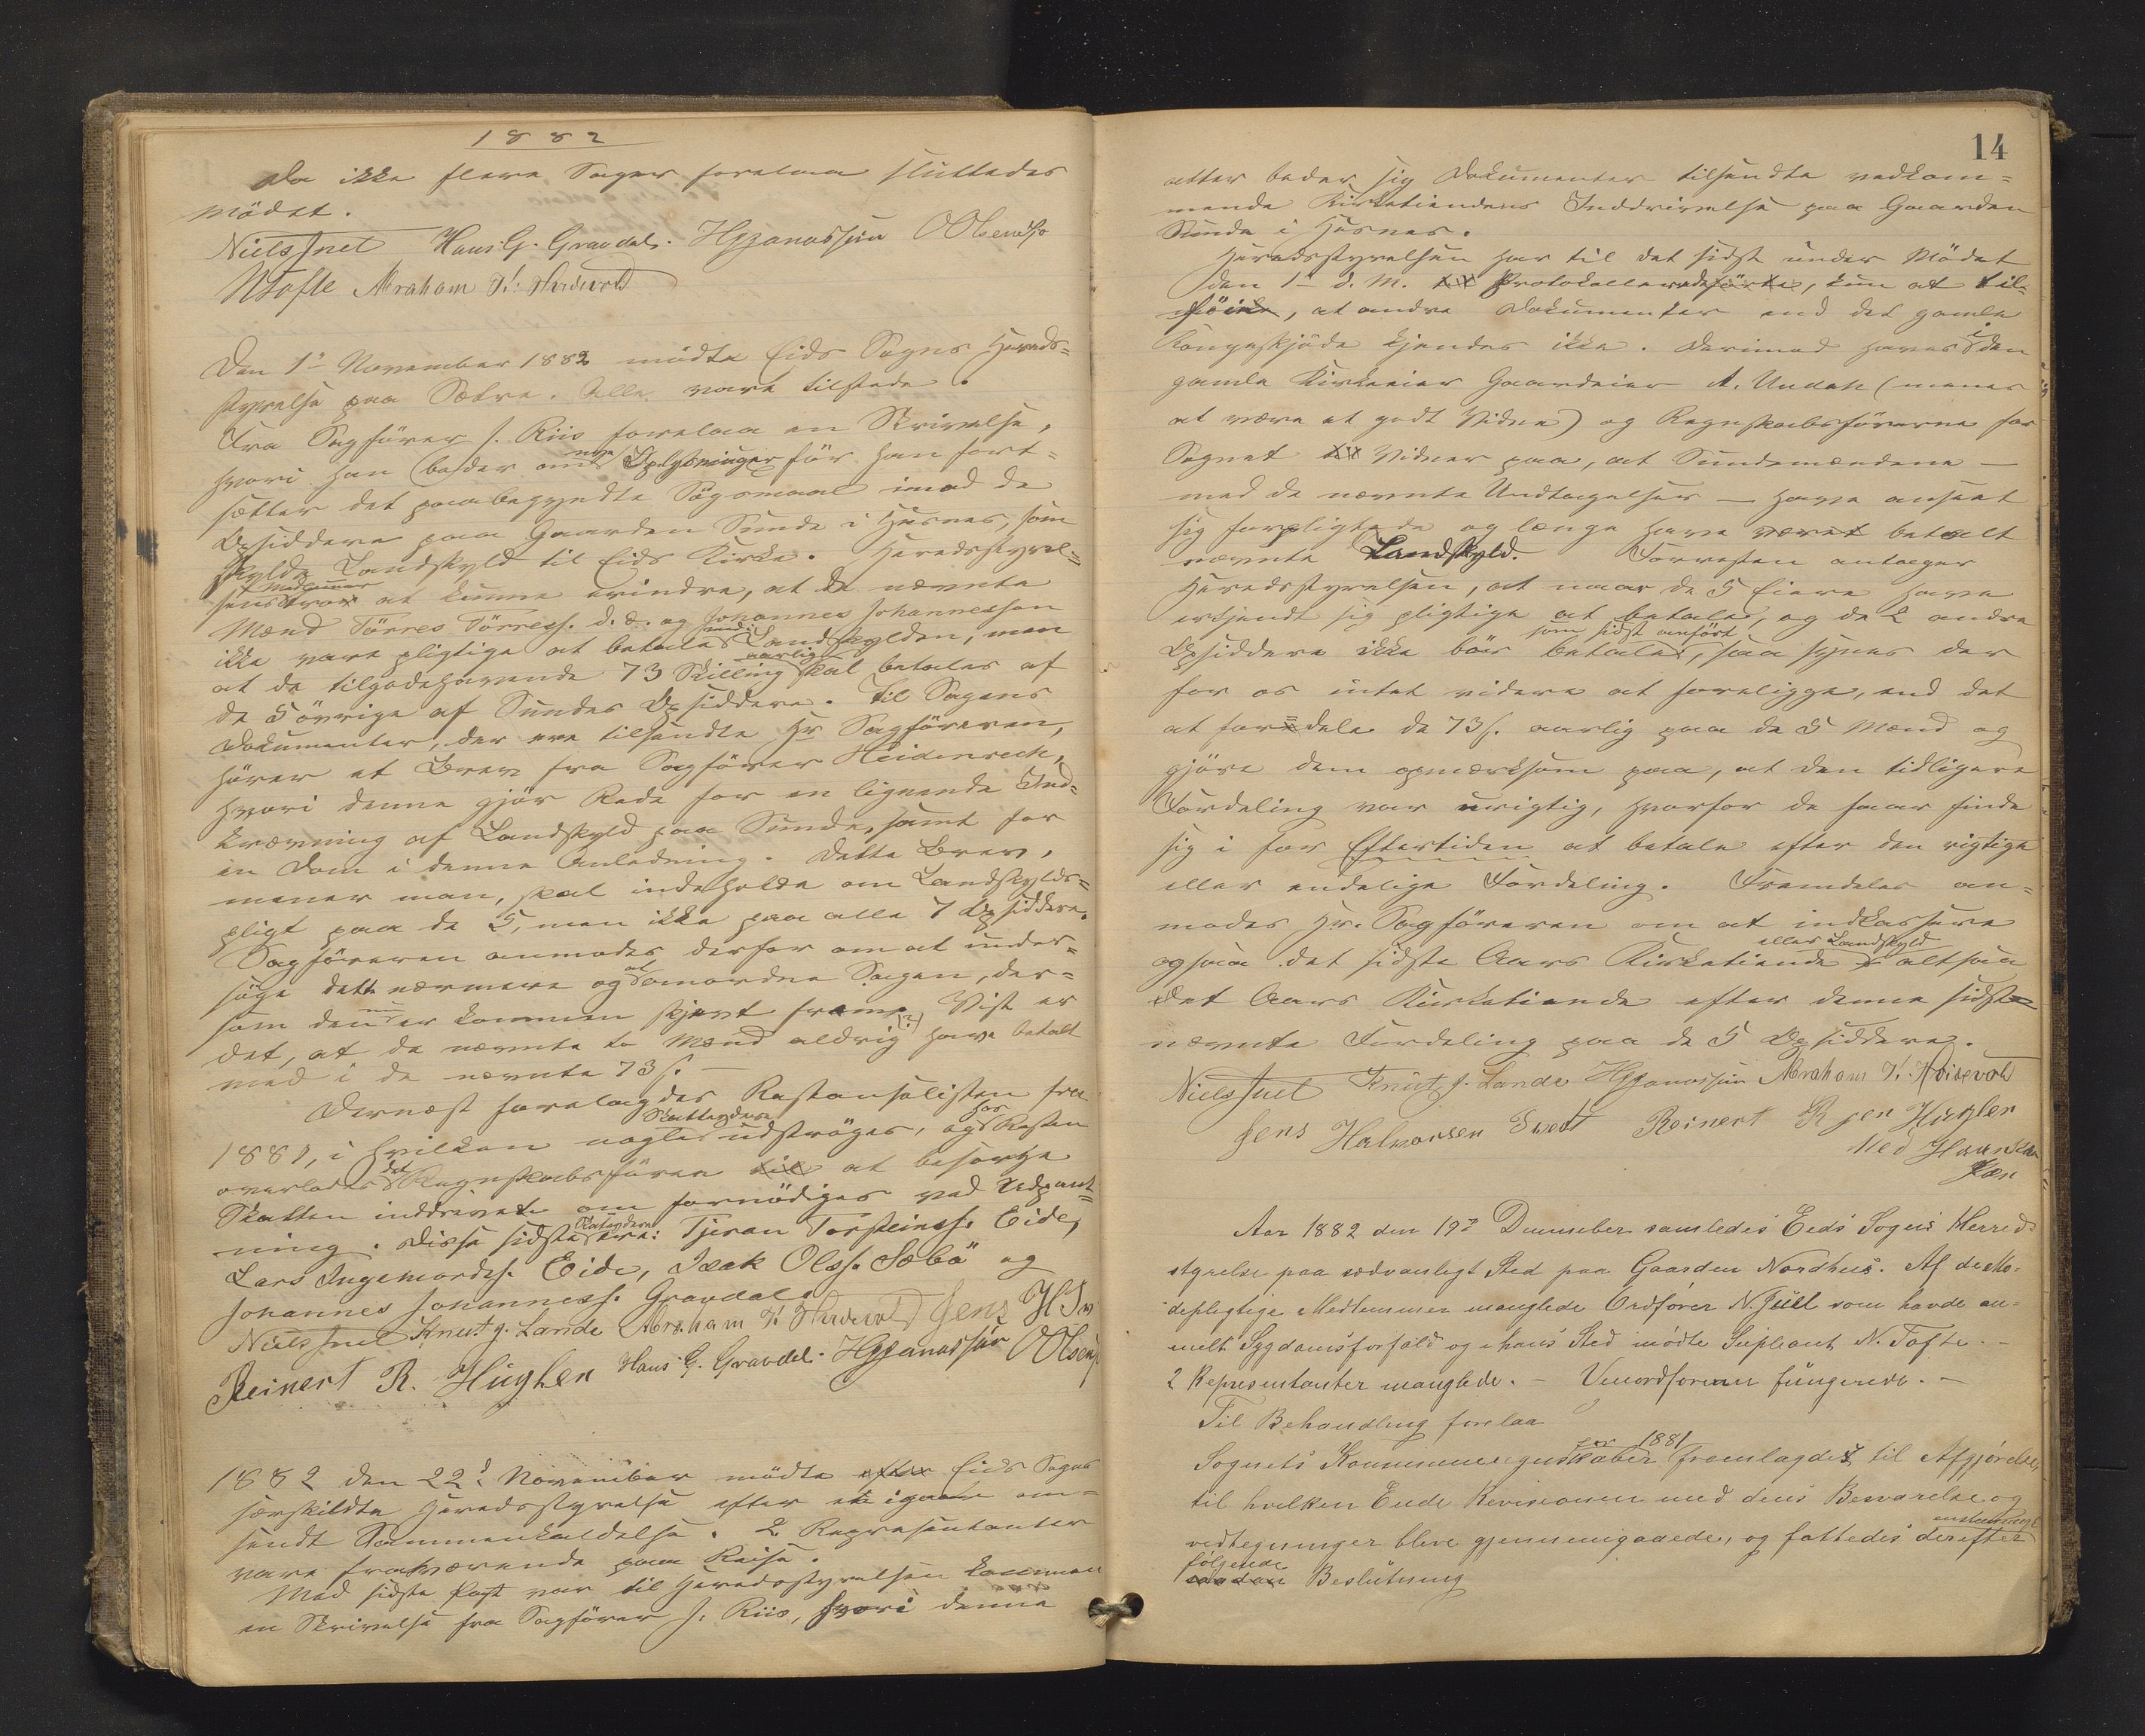 1882
Da ikke flere Sager forelaa sluttedes
Mödet.
Niels Juel Hans G. Gravdal. H Gjonassön O Olsen
N Tofte Abraham K.
Den 1ste November 1882 mödte Eids Sogns Hereds=
styrelse paa Sætre. Alle vare tilstede.
Fra Sagförer J. Riis forelaa en Skrivelse,
hvori han beder om nye Oplysninger för han fort=
sætter det paabegyndte Sögsmaal imod de
Opsiddere paa Gaarden Sunde i Husnes, som
skylde Landskyld til Eids Kirke. Heredsstyrel=
sens Medlemmer troer at kunne erindre, at de nævnte
Mænd Törres Törress. d. æ. og Johannes Johannessen
ikke vare pligtige at betale Landskylden, men
at de tilgodehavende 73 Skilling aarlig skal betales af
de 5 övrige af Sundes Opsiddere. Til Sagens
Dokumenter, der ere tilsendte Hr Sagföreren,
hörer et Brev fra Sagförer Heidenrech,
hvori denne gjör Rede for en lignende Ind=
krævning af Landskyld paa Sunde, samt for
en Dom i denne Anledning. Dette Brev,
mener man, skal indeholde om Landskylds=
pligt paa de 5, men ikke paa alle 7 Opsiddere.
Sagföreren anmodes derfor om at under=
söge dette nærmere og at omordne Sagen, der=
som den nu er kommen skjævt frem. Vist er
det, at de nævnte to Mænd aldrig (?) have betalt
med i de nævnte 73 s. —
Dernæst forelagdes Restanselisten fra
1881, i hvilken nogle Skatteydere udströges, og for Resten
overlodes det Regnskabsföreren at besörge
Skatten inddrevet om fornödiges ved Udpant=
ning. Disse sidste Skatydere ere: Tjeran Torsteinss. Eide,
Lars Ingemordss. Eide, Isak Olss. Sæbö og
Johannes Johanness. Gravdal.
Niels Juel Knut J. Lande Abraham K. Jens H
Reinert R. Huglen Hans G. Gravdal. H Gjonassön O Olsen
1882 den 22d November mödte Eids Sogns
særskildte Heredsstyrelse efter en igaar om=
sendt Sammenkaldelse. 2 Repræsentanter
vare fraværende paa Reise.
Med sidste Post var til Heredsstyrelsen kommen
en Skrivelse fra Sagförer J. Riis, hvori denne
14
atter beder sig Dokumenter tilsendte vedkom=
mende Kirketiendens Inddrivelse paa Gaarden
Sunde i Husnes.
Heredsstyrelsen har til det sidst under Mödet
den 1ste d. M. Protokollerede, kun at til=
föie, at andre Dokumenter end det gamle
Kongeskjöde kjendes ikke. Derimod haves i den
gamle Kirkeeier Gaardeier A. Undah (menes
at være et godt Vidne) og Regnskabsförerne for
Sognet Vidner paa, at Sundemændene —
med de nævnte Undtagelser — have anseet
sig forpligtede og længe have været betalt
nævnte Landskyld. Forresten antager
Heredsstyrelsen, at naar de 5 Eiere have
erkjendt sig pligtige at betale, og de 2 andre
Opsiddere ikke bör betale som sidst anfört, saa synes der
for os intet videre at foreligge, end det
at fordele de 73 s. aarlig paa de 5 Mænd og
gjöre dem opmærksom paa, at den tidligere
Fordeling var urigtig, hvorfor de faar finde
sig i for Eftertiden at betale efter den rigtige
eller endelige Fordeling. Fremdeles an=
modes Hr. Sagföreren om at indkassere
ogsaa det sidste Aars Kirketiende eller Landskyld altsaa
det Aars Kirketiende efter denne sidst
nævnte Fordeling paa de 5 Opsiddere.
Niels Juel Knut J. Lande H Gjonassön Abraham K.
Jens Halvorsen Tvedt Reinert R Huglen
Med Haand
Pæn
Aar 1882 den 19de Desember samledes Eeds Sogns Herreds
styrelse paa sædvanligt Sted paa Gaarden Nordhus. Af de Mö-
depligtige Medlemmer manglede Ordförer N. Juel som havde an-
melt Sygdomsforfald og i hans Sted mödte Supleant N. Tofte. —
2 Representanter manglede. — Viceordföreren fungerede. —
Til Behandling forelaa
Sognets Kommuneregnskaber for 1881 fremlagdes til Afgjörelse,
til hvilken Ende Revisionen med dens Besvarelse og
vedtegninger bleve gjennemgaaede, og fattedes derefter enstemmigt
fölgende Beslutning